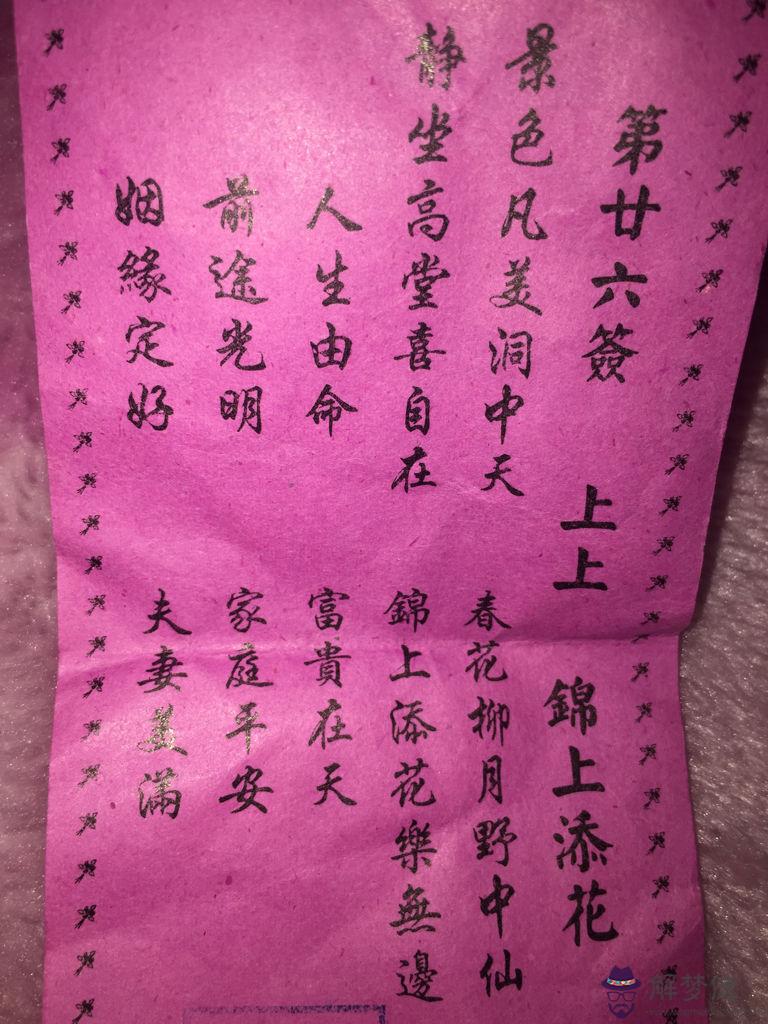 第廿六簽 上上 錦上添花
景色凡美洞中天 春花柳月野中仙
静坐高堂喜自在 錦上添花樂無邊
人生由命 富貴在天
前途光明 家庭平安
姻緣定好 夫妻美滿
解梦佬